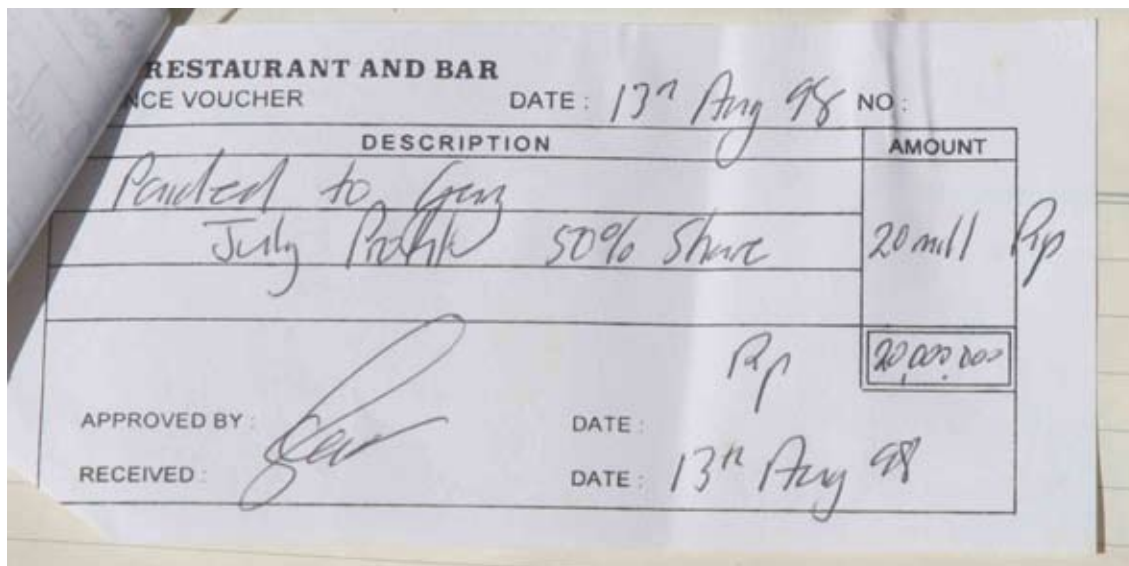 RESTAURANT AND BAR
NCE VOUCHER DATE : 13th Aug 98 NO :
DESCRIPTION AMOUNT
to
July Profit 50% Share 20 mill Rp
Rp 20,000.000
APPROVED BY : DATE :
RECEIVED : DATE : 13th Aug 98